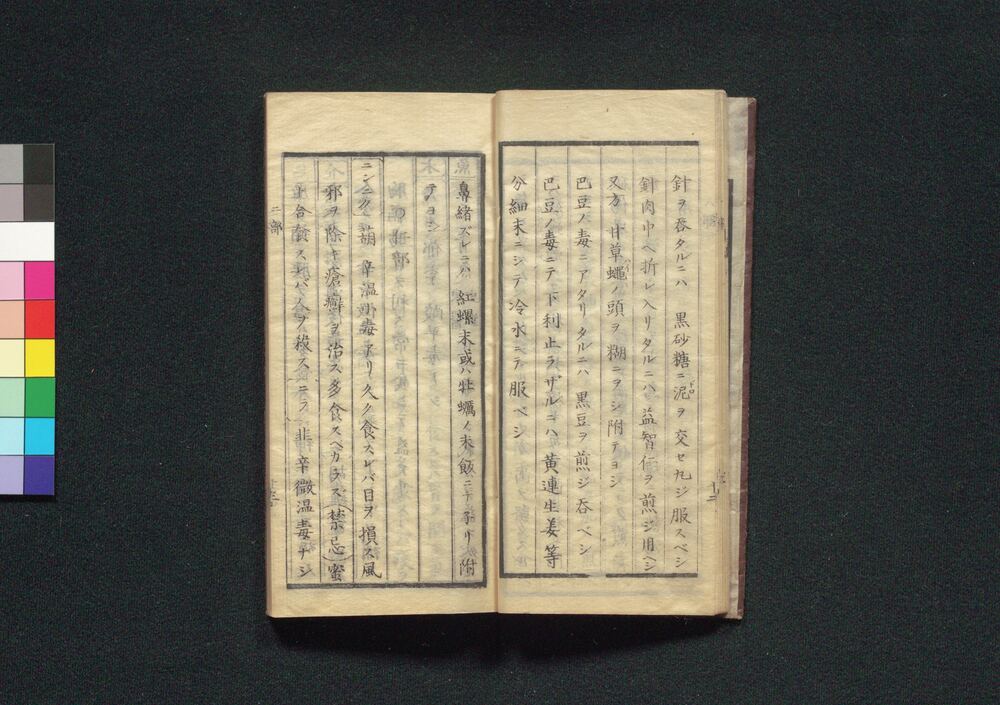 針ヲ呑タルニハ 黒砂糖ニ泥ヲ交セ丸ジ服スベシ
ドロ
針肉中ヘ折レ入リタルニハ 益智仁ヲ煎ジ用ベシ
又方 甘草蠅ノ頭ヲ糊ニヲシ附テヨシ
巴豆ノ毒ニアタリタルニハ 黒豆ヲ煎ジ呑ベシ
巴豆ノ毒ニテ下利止ラザルニハ 黄連生姜等
分細末ニシテ冷水ニテ服ベシ
鼻緒ズレニハ 紅螺末或ハ牡蠣ノ末飯ニテ 附
テヨシ
ニンニク 葫 辛温 毒アリ 久ク食スレバ目ヲ損ス風
邪ヲ除キ瘡癬ヲ治ス多食スベカラズ(禁忌)蜜
合食スレバ人ヲ殺ス ニラ 韭 辛微温毒ナシ
ニ部